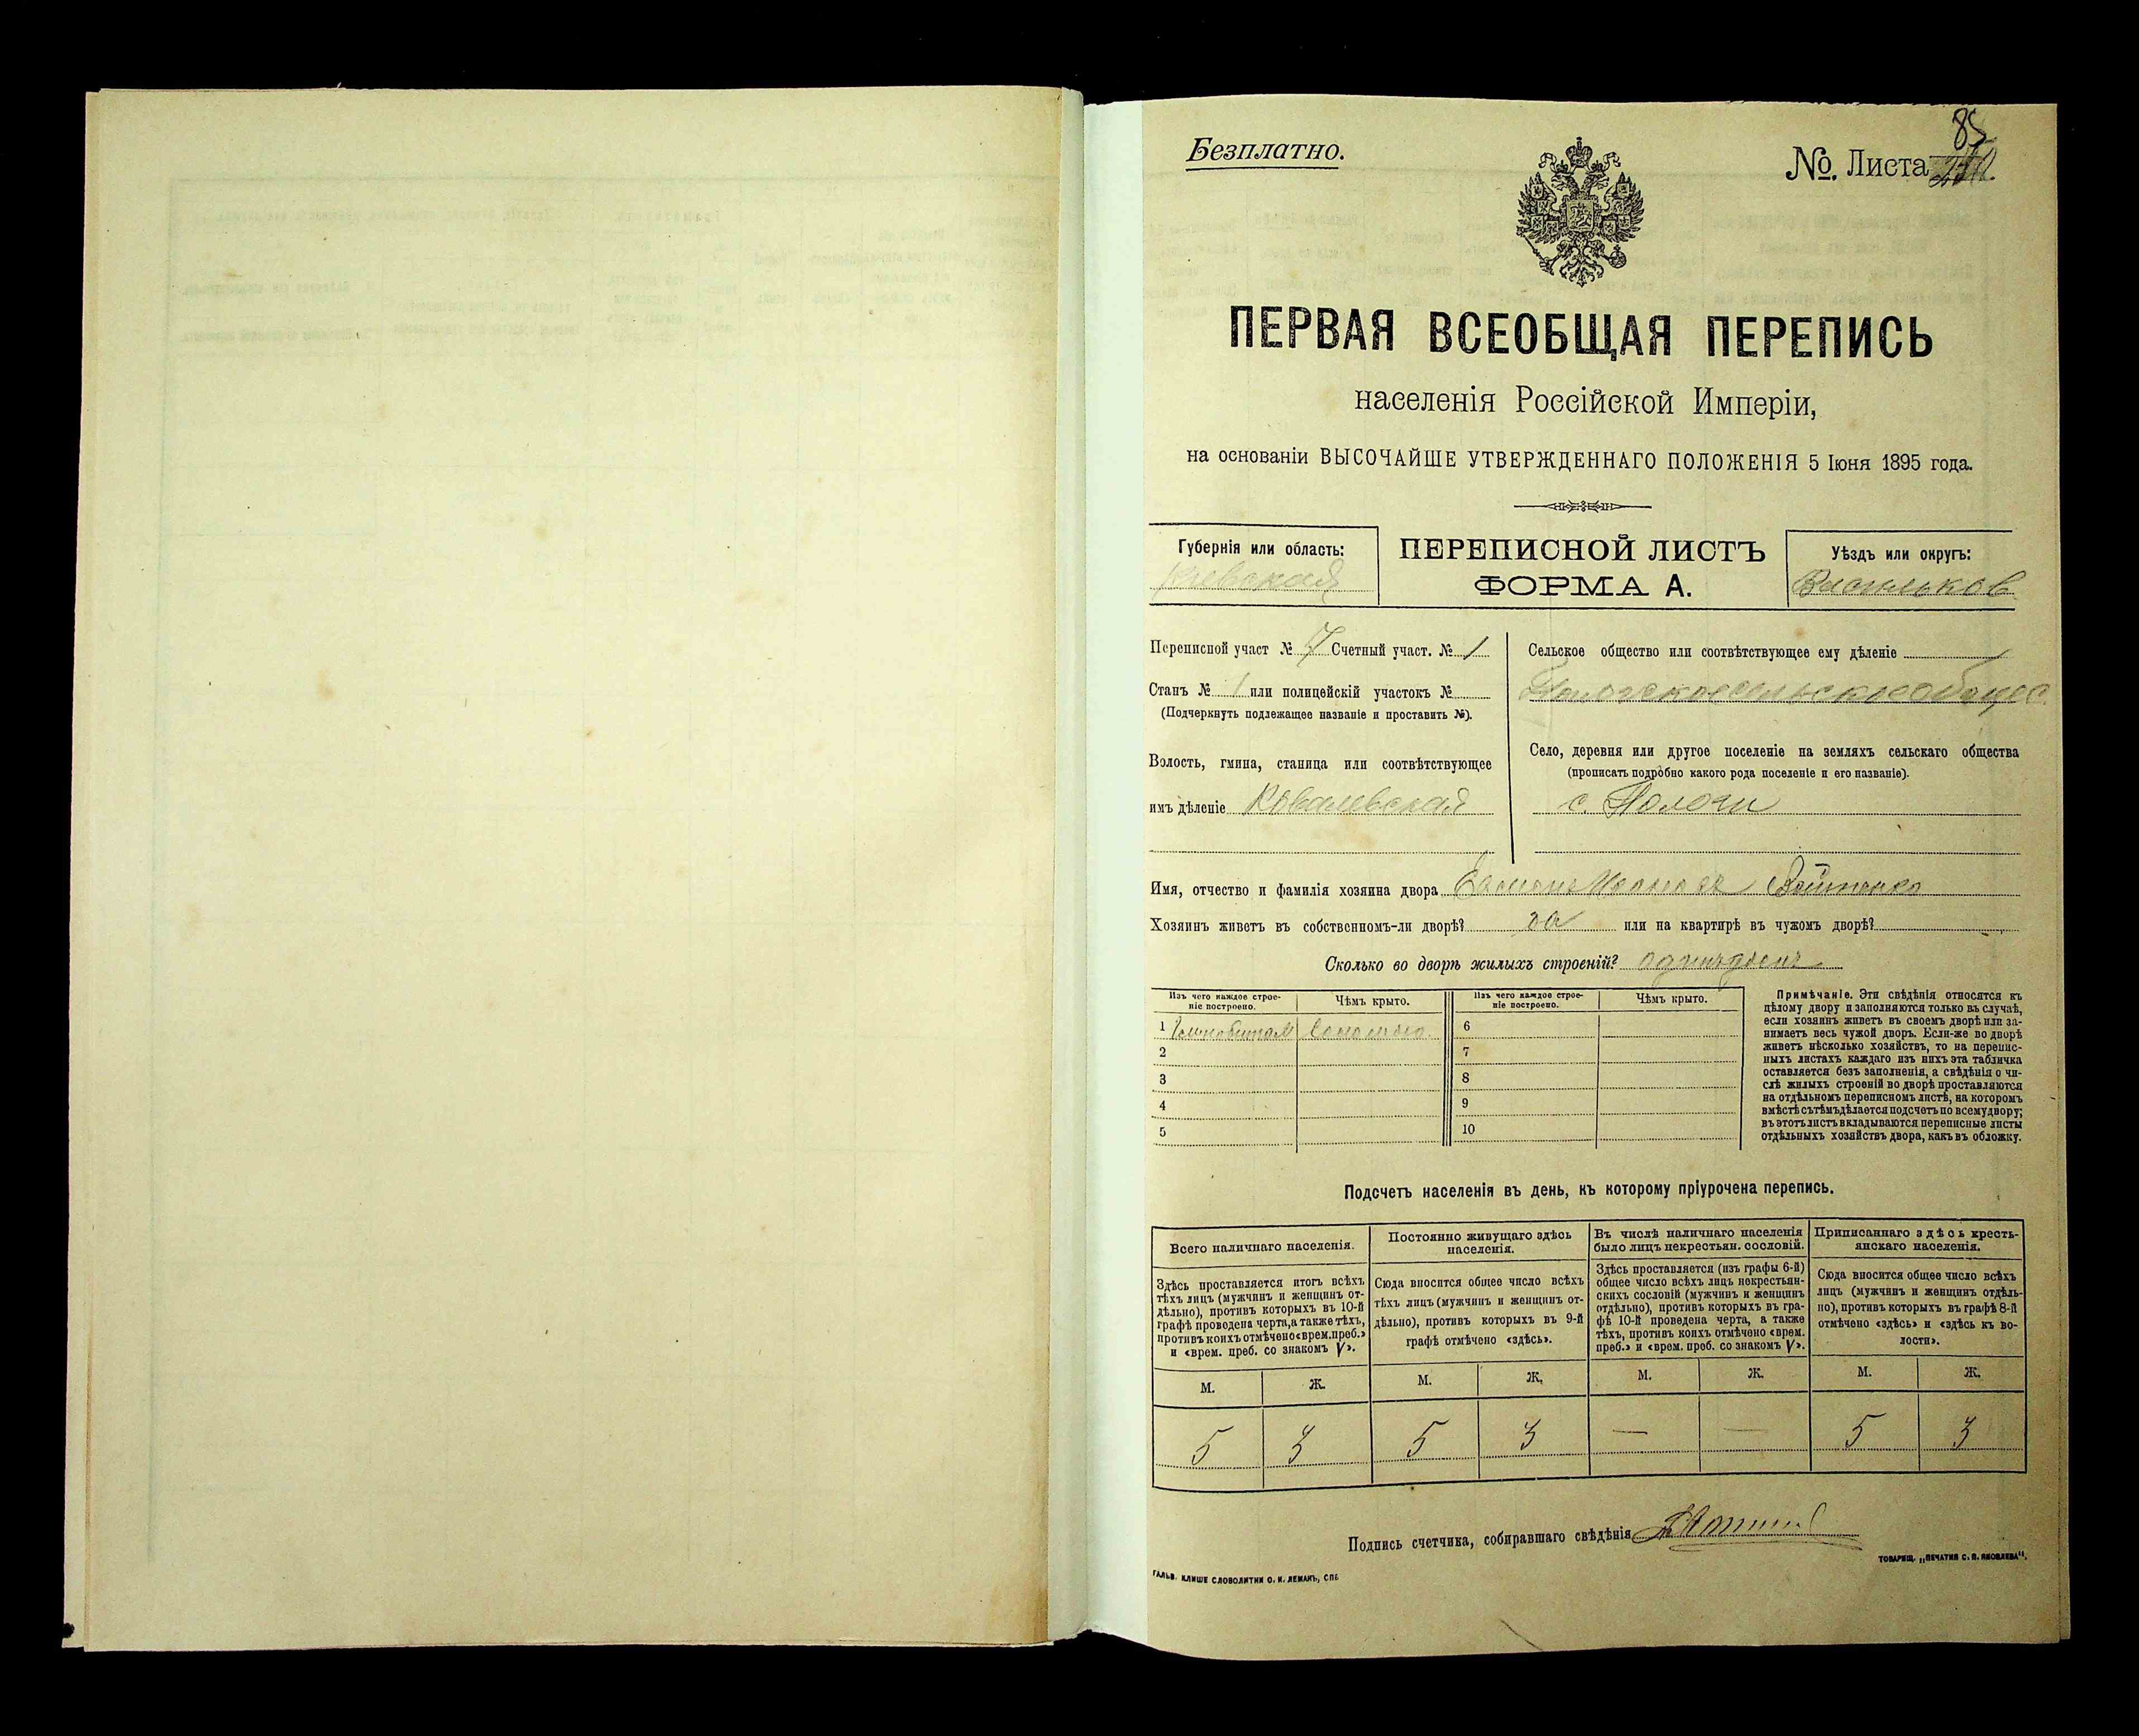 Безплатно.
№. Листа
85
ПЕРВАЯ ВСЕОБЩАЯ ПЕРЕПИСЬ
населенія Россійской Имперіи,
на основаніи ВЫСОЧАЙШЕ УТВЕРЖДЕННАГО ПОЛОЖЕНІЯ 5 Іюня 1895 года.
Губернія или область:
Кіевская
ПЕРЕПИСНОЙ ЛИСТЪ
ФОРМА А.
Уѣздъ или округъ:
Васильков
Переписной участ № 7 Счетный участ. № 1
Станъ № 1 или полицейскій участокъ №
(Подчеркнуть подлежащее названіе и проставить №).
Волость, гмина, станица или соотвѣтствующее
имъ дѣленіе Ковалевская
Сельское общество или соотвѣтствующее ему дѣленіе
Пологское сельское общес
Село, деревня или другое поселеніе на земляхъ сельскаго общества
(прописать подробно какого рода поселеніе и его названіе).
с. Пологи
Имя, отчество и фамилія хозяина двора Войтенко
Хозяинъ живетъ въ собственномъ-ли дворѣ? да или на квартирѣ въ чужомъ дворѣ?
Сколько во дворѣ жилыхъ строеній?
Изъ чего каждое строе-
ніе построено.
Чѣмъ крыто.
Изъ чего каждое строе-
ніе построено.
Чѣмъ крыто.
1 соломою 6
2 7
3 8
4 9
5 10
Примѣчаніе. Эти свѣдѣнія относятся къ
цѣлому двору и заполняются только въ случаѣ,
если хозяинъ живетъ въ своемъ дворѣ или за-
нимаетъ весь чужой дворъ. Если-же во дворѣ
живетъ нѣсколько хозяйствъ, то на перепис-
ныхъ листахъ каждаго изъ нихъ эта табличка
оставляется безъ заполненія, а свѣдѣнія о чи-
слѣ жилыхъ строеній во дворѣ проставляются
на отдѣльномъ переписномъ листѣ, на которомъ
вмѣстѣ съ тѣмъ дѣлается подсчетъ по всему двору;
въ этотъ листъ вкладываются переписные листы
отдѣльныхъ хозяйствъ двора, какъ въ обложку.
Подсчетъ населенія въ день, къ которому пріурочена перепись.
Всего наличнаго населенія.
Здѣсь проставляется итогъ всѣхъ
тѣхъ лицъ (мужчинъ и женщинъ от-
дѣльно), противъ которыхъ въ 10-й
графѣ проведена черта, а также тѣхъ,
противъ коихъ отмѣчено «врем. преб.»
и «врем. преб. со знакомъ V».
Постоянно живущаго здѣсь
населенія.
Сюда вносится общее число всѣхъ
тѣхъ лицъ (мужчинъ и женщинъ от-
дѣльно), противъ которыхъ въ 9-й
графѣ отмѣчено «здѣсь».
Въ числѣ наличнаго населенія
было лицъ некрестьян. сословій.
Здѣсь проставляется (изъ графы 6-й)
общее число всѣхъ лицъ некрестьян-
скихъ сословій (мужчинъ и женщинъ
отдѣльно), противъ которыхъ въ гра-
фѣ 10-й проведена черта, а также
тѣхъ, противъ коихъ отмѣчено «врем.
преб.» и «врем. преб. со знакомъ V».
Приписаннаго здѣсь кресть-
янскаго населенія.
Сюда вносится общее число всѣхъ
лицъ (мужчинъ и женщинъ отдѣль-
но), противъ которыхъ въ графѣ 8-й
отмѣчено «здѣсь» и «здѣсь къ во-
лости».
М. Ж. М. Ж. М. Ж. М. Ж.
5 3 5 3 — — 5 3
Подпись счетчика, собиравшаго свѣдѣнія
ГАЛЬВ. КЛИШЕ СЛОВОЛИТНИ О. И. ЛЕМАНЪ, СПБ
ТОВАРИЩ. „ПЕЧАТНЯ С. П. ЯКОВЛЕВА".